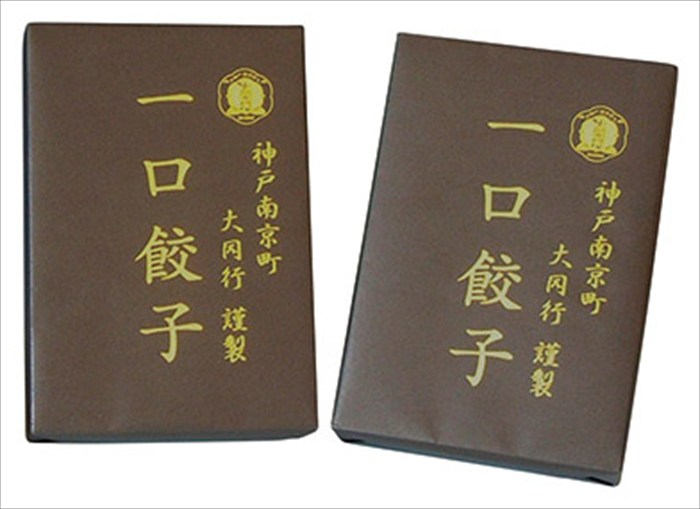 神戸南京町
大冈行 謹製
一口餃子
神戸南京町
大冈行 謹製
一口餃子